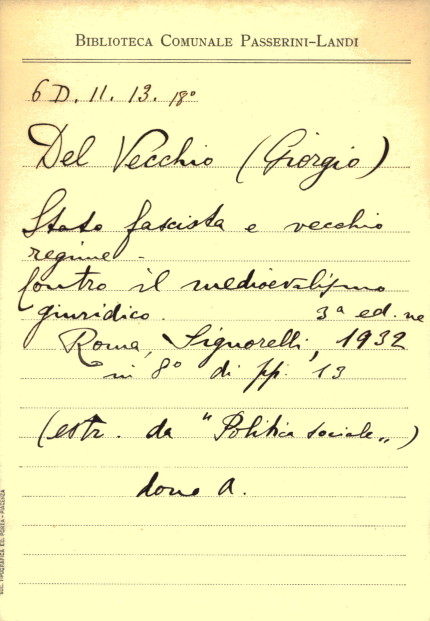 BIBLIOTECA COMUNALE PASSERINI-LANDI
6 D. 11. 13. 18°
Del Vecchio (Giorgio)
Stato fascista e vecchio
regime -
Contro il medioevalismo
giuridico. 3ª ed.ne
Roma, Signorelli, 1932
in 8° di pp. 13
(estr. da "Politica sociale„)
dono A.